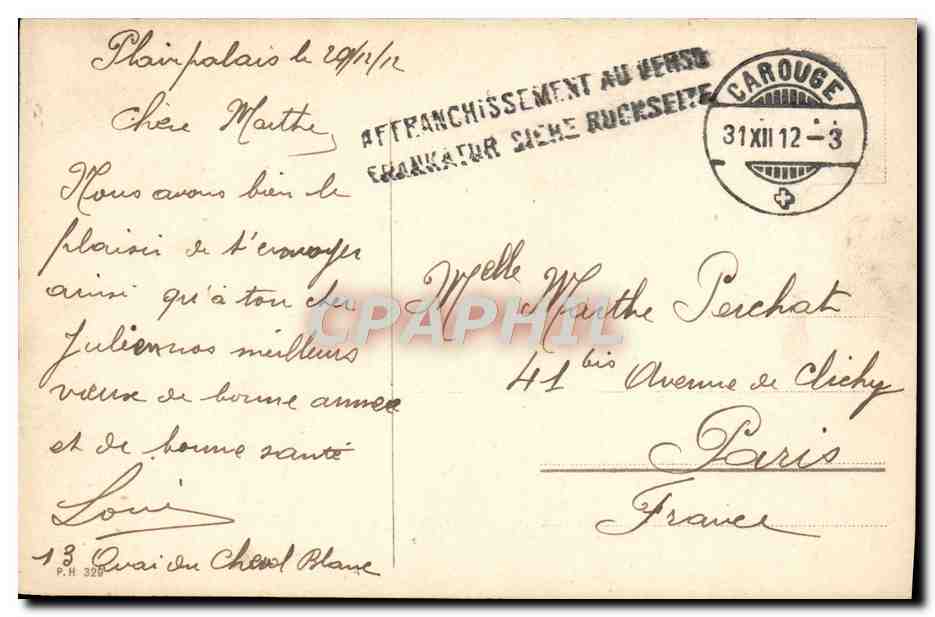 Plainpalais le 29/12/12
Chère Marthe
Nous avons bien le
plaisir de t'envoyer
ainsi qu'à ton cher
Julien nos meilleurs
vœux de bonne année
et de bonne santé
Louis
13 Quai du Cheval Blanc
P.H 329
AFFRANCHISSEMENT AU VERSO
FRANKATUR SIEHE RÜCKSEITE
CAROUGE
31 XII 12 - 3
Melle Marthe Perchat
41 bis Avenue de Clichy
Paris
France
CPAPHIL